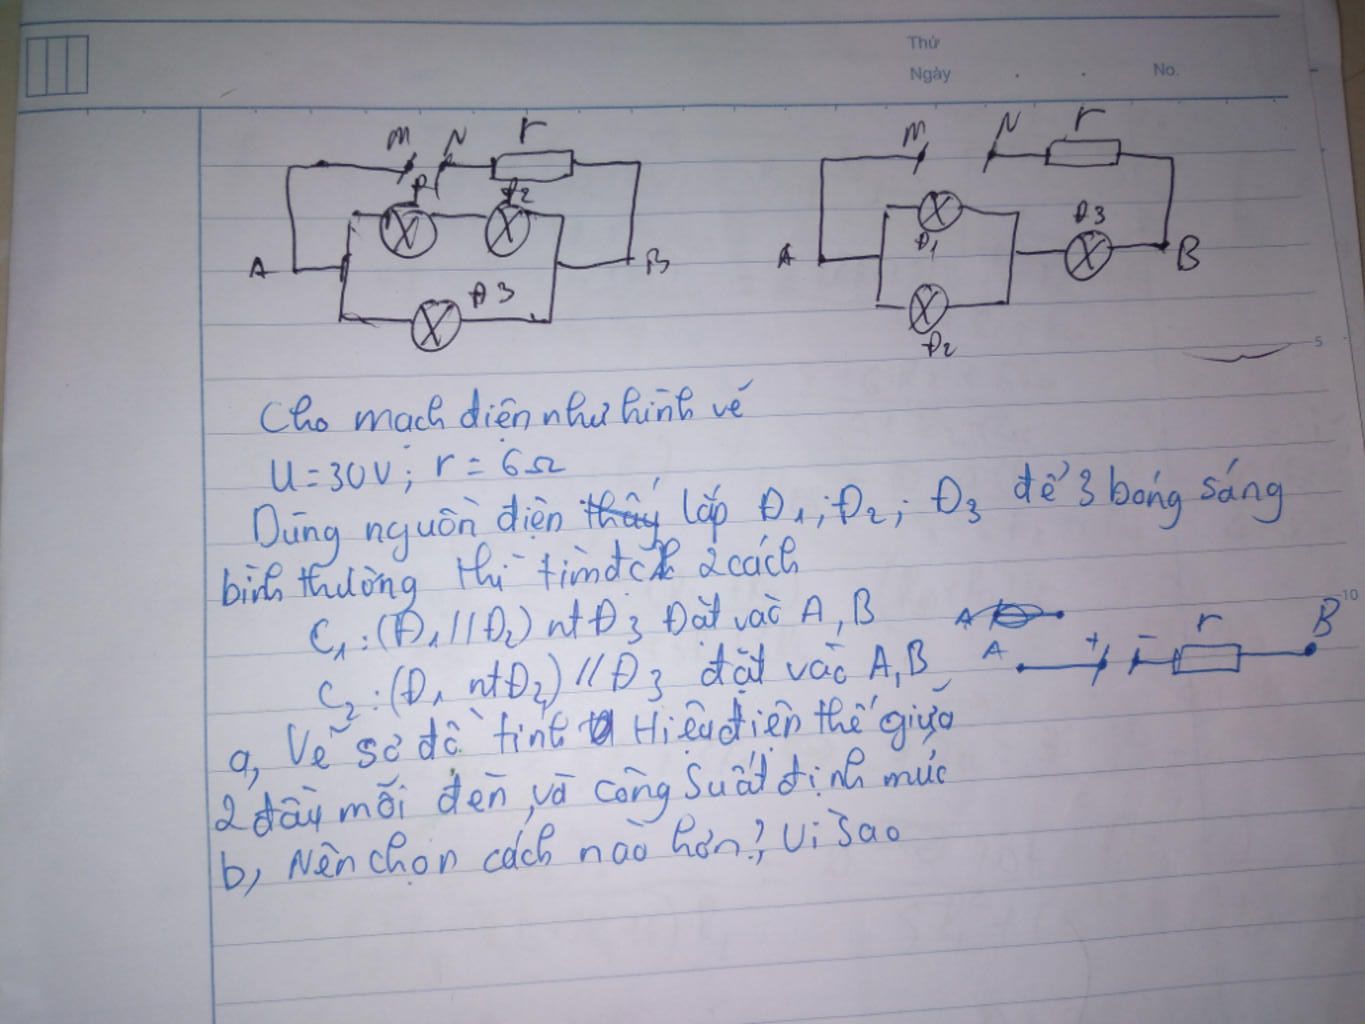 Thứ
Ngày . . No.
M N r M N r
Đ1 Đ2 Đ3
A B A Đ1 B
Đ3
Đ2
5
Cho mạch điện như hình vẽ
U = 30V; r = 6Ω
Dùng nguồn điện thấy lắp Đ1; Đ2; Đ3 để 3 bóng sáng
bình thường thì tìm đc 2 cách
10
C1: (Đ1 // Đ2) nt Đ3 Đặt vào A, B A r B
C2: (Đ1 nt Đ2) // Đ3 đặt vào A, B A + -
a, Vẽ sơ đồ tính Hiệu điện thế giữa
2 đầu mỗi đèn, và công suất định mức
b, Nên chọn cách nào hơn? Vì Sao